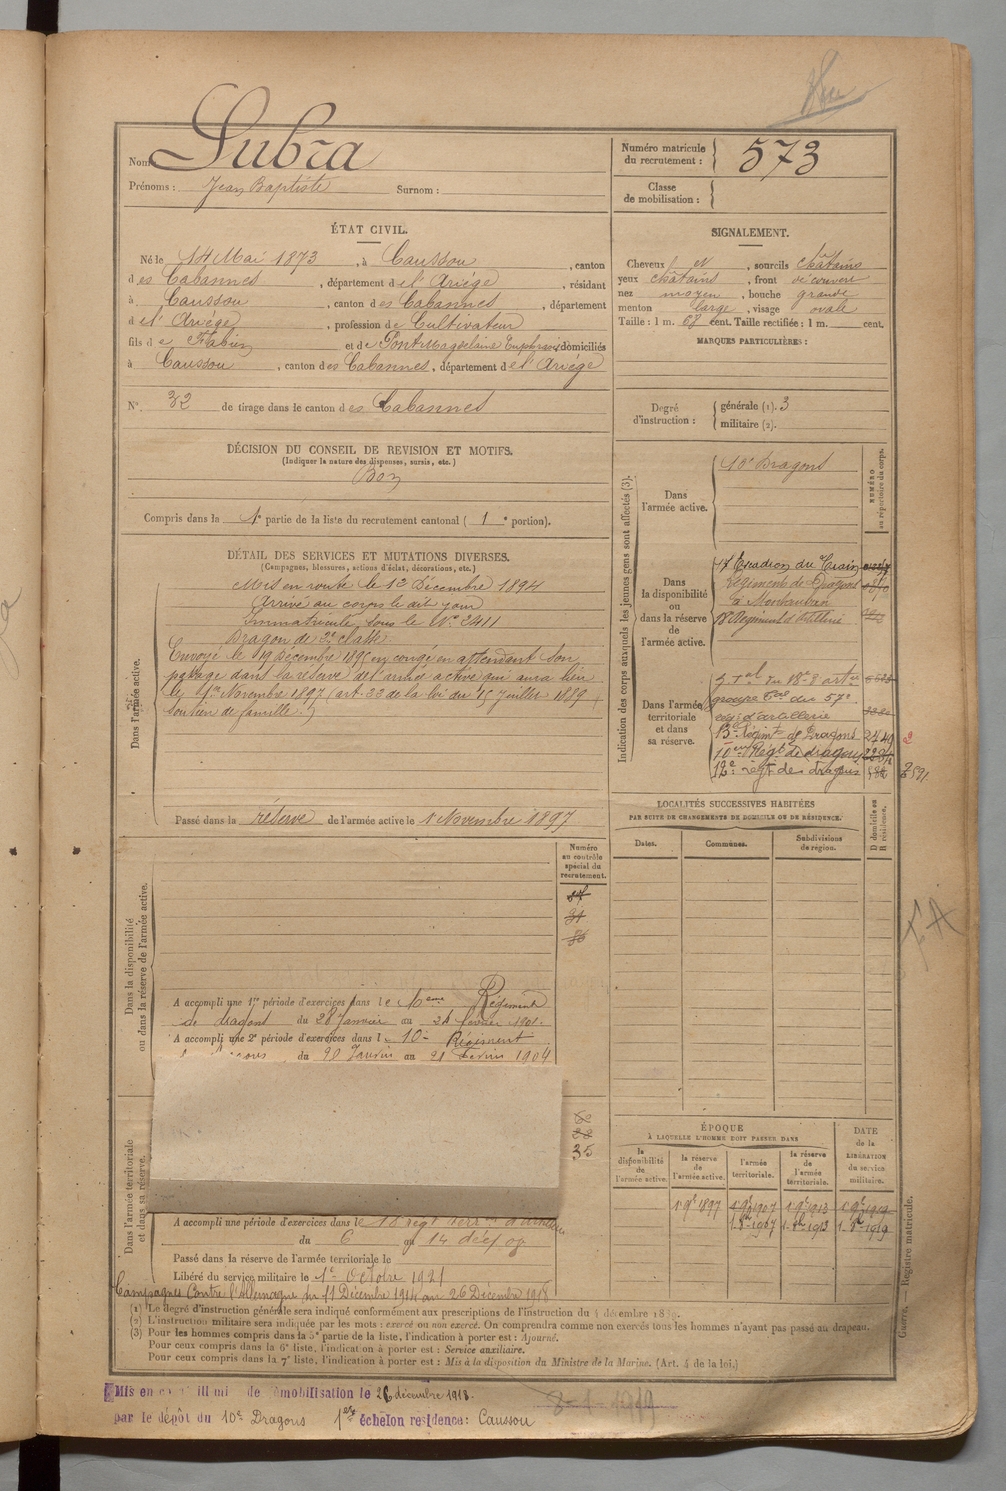 Nom Lubra
Prénoms : Jean Baptiste Surnom :
Numéro matricule du recrutement : 573
Classe de mobilisation :
ÉTAT CIVIL.
Né le 14 Mai 1873, à Caussou, canton
des Cabannes, département de l'Ariége, résidant
à Caussou, canton des Cabannes, département
de l'Ariége, profession de Cultivateur
fils de Fabien et de Pont Magdelaine domiciliés
à Caussou, canton des Cabannes, département de l'Ariége
N° 32 de tirage dans le canton des Cabannes
SIGNALEMENT.
Cheveux N, sourcils châtains
yeux châtains, front découvert
nez moyen, bouche grande
menton large, visage ovale
Taille : 1 m. 68 cent. Taille rectifiée : 1 m. cent.
MARQUES PARTICULIÈRES :
Degré d'instruction : générale (1). 3
militaire (2).
DÉCISION DU CONSEIL DE REVISION ET MOTIFS.
(Indiquer la nature des dispenses, sursis, etc.)
Bon
Compris dans la 1e partie de la liste du recrutement cantonal (1e portion).
DÉTAIL DES SERVICES ET MUTATIONS DIVERSES.
(Campagnes, blessures, actions d'éclat, décorations, etc.)
Dans l'armée active.
Mis en route le 12 Décembre 1894
Arrivé au corps le dit jour
Immatriculé sous le N° 2411
Dragon de 2e classe
Envoyé le 19 Décembre 1895 en congé en attendant son
passage dans la réserve de l'armée active qui aura lieu
le 1er Novembre 1897 (art. 33 de la loi du 15 juillet 1889
soutien de famille.)
Passé dans la réserve de l'armée active le 1 Novembre 1897
Indication des corps auxquels les jeunes gens sont affectés (3).
NUMÉRO au répertoire du corps.
Dans l'armée active.
10e Dragons
Dans la disponibilité ou dans la réserve de l'armée active.
17 Escadron du Train
Régiments de Dragons
à Montauban
18 Régiment d'Artillerie
Dans l'armée territoriale et dans sa réserve.
groupe du 57e
d'artillerie
13e Régimt de Dragons 2449
10e Régt de dragons
12e régt des dragons
LOCALITÉS SUCCESSIVES HABITÉES
PAR SUITE DE CHANGEMENTS DE DOMICILE OU DE RÉSIDENCE.
Dates. Communes. Subdivisions de région. D domicile ou R résidence.
Dans la disponibilité ou dans la réserve de l'armée active.
Numéro au contrôle spécial du recrutement.
A accompli une 1re période d'exercices dans le 10eme Régiment
de dragons du 28 Janvier au 24 février 1901.
A accompli une 2e période d'exercices dans le 10e Régiment
du 20 Janvier au 21 Février 1904
35
Dans l'armée territoriale et dans sa réserve.
A accompli une période d'exercices dans le 18 régt
du 6 au 14
Passé dans la réserve de l'armée territoriale le
Libéré du service militaire le 1er Octobre 1921
Campagnes Contre l'Allemagne du 11 Décembre 1914 au 26 Décembre 1918
ÉPOQUE
À LAQUELLE L'HOMME DOIT PASSER DANS
la disponibilité de l'armée active.
la réserve de l'armée active.
l'armée territoriale.
la réserve de l'armée territoriale.
DATE de la LIBÉRATION du service militaire.
1 9bre 1897 1 9bre 1907 1 9bre 1913 1 9bre 1919
1. 8bre 1907 1. 8bre 1913 1. 8bre 1919
(1) Le degré d'instruction générale sera indiqué conformément aux prescriptions de l'instruction du 4 décembre 1889.
(2) L'instruction militaire sera indiquée par les mots : exercé ou non exercé. On comprendra comme non exercés tous les hommes n'ayant pas passé au drapeau.
(3) Pour les hommes compris dans la 5e partie de la liste, l'indication à porter est : Ajourné.
Pour ceux compris dans la 6e liste, l'indication à porter est : Service auxiliaire.
Pour ceux compris dans la 7e liste, l'indication à porter est : Mis à la disposition du Ministre de la Marine. (Art. 4 de la loi.)
Guerre. — Registre matricule.
Mis en démobilisation le 26 décembre 1918.
par le dépôt du 10e Dragons 1er échelon residence : Caussou
8-1-1919